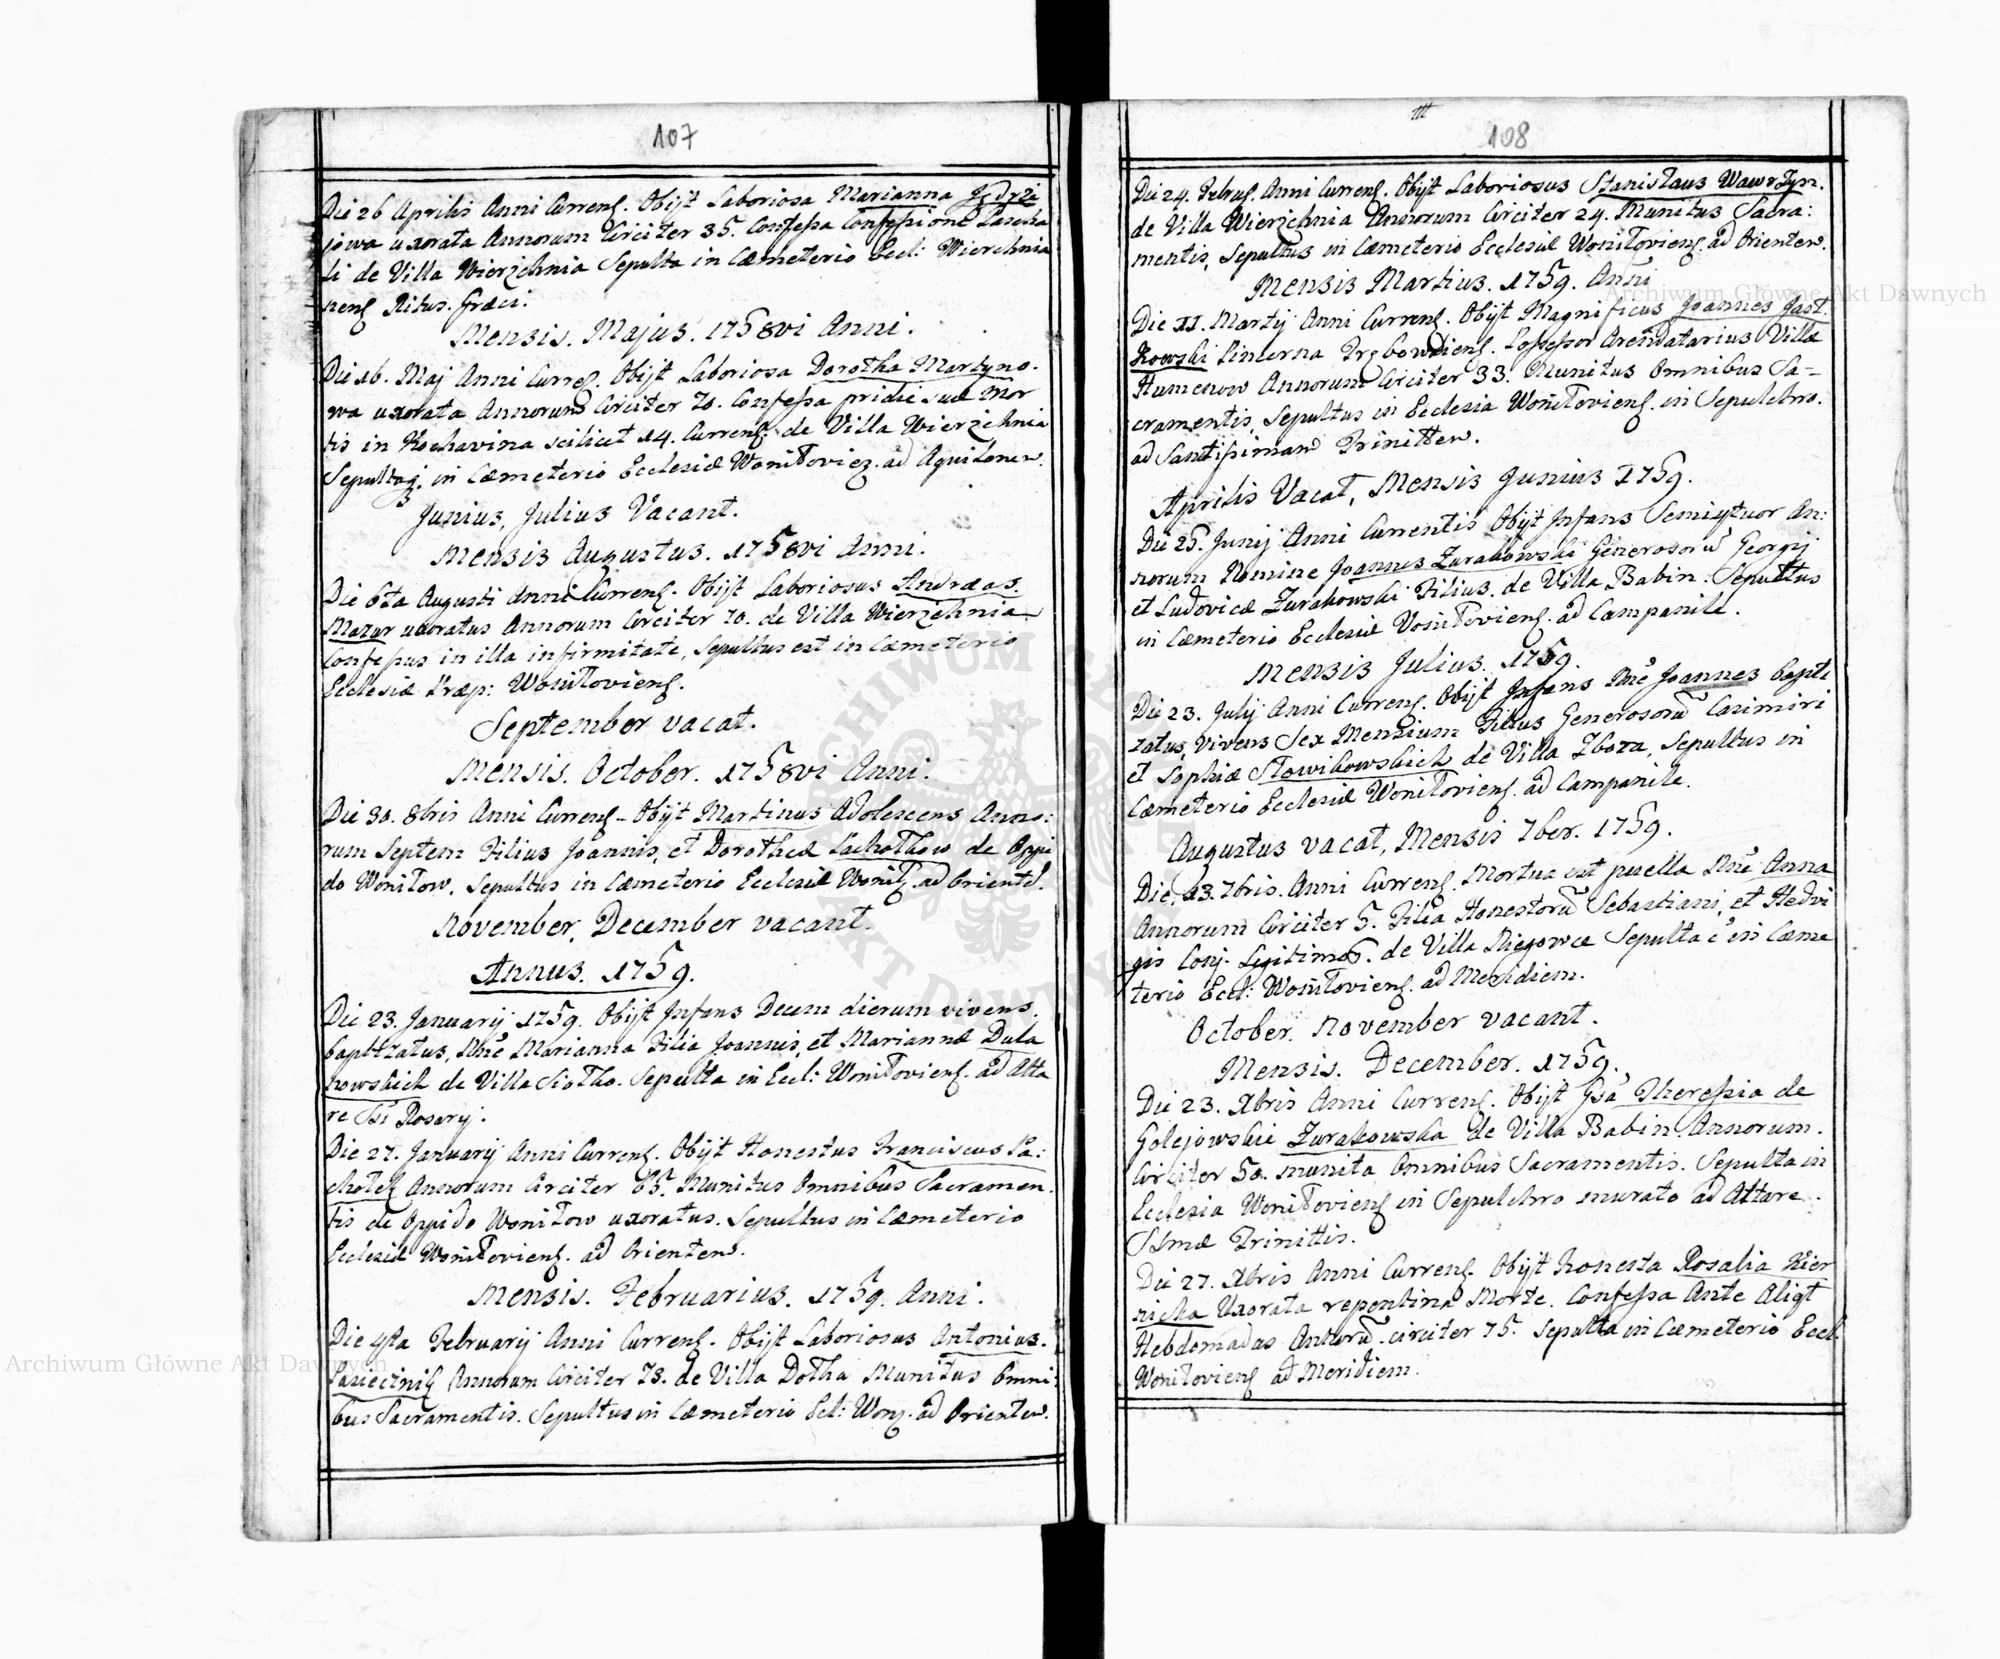 107
Die 26 Aprilis Anni Currens. Obijt Laboriosa Marianna Jędrze
jowa uxorata Annorum Circiter 35. Confessa Confessione Pascha
li de Villa Wierzchnia Sepulta in Cæmeterio Eccl: Wierchnia
nens Ritus. Græci.
Mensis. Majus. 1758vi Anni.
Die 16. Maj Anni Currens. Obijt Laboriosa Dorotha Martyno.
wa uxorata Annorum Circiter 70. Confessa pridie suæ Mor
tis in Kochavina scilicet 14. Currens. de Villa Wierzchnia
Sepulta in Cæmeterio Ecclesiæ Woniłoviez. ad Aquilonem.
Junius, Julius Vacant.
Mensis Augustus. 1758vi Anni.
Die 6ta Augusti Anni Currens. Obijt Laboriosus Andræas.
Mazur uxoratus Annorum Circiter 70. de Villa Wierzchnia
Confessus in illa infirmitate, Sepultus est in Cæmeterio
Ecclesiæ Præp: Woniłoviens.
September vacat.
Mensis. October. 1758vi Anni.
Die 30. 8bris Anni Currens. Obijt Martinus Adolescens Anno:
rum Septem Filius Joannis, et Dorotheæ Lachothow de Oppi
do Woniłow. Sepultus in Cæmeterio Ecclesiæ Wonił. ad Orientē.
November, December vacant.
Annus. 1759.
Die 23. Januarij 1759. Obijt Infans Decem dierum vivens.
baptizatus, Nñe Marianna Filia Joannis, et Mariannæ Dula
nowskich de Villa Siołko. Sepulta in Eccl: Woniłoviens. ad Alta
re SSi Rosarij.
Die 27. Januarij Anni Currens. Obijt Honestus Franciscus Pa:
chołek Annorum Circiter 65. Munitus Omnibus Sacramen.
tis de Oppido Woniłow uxoratus. Sepultus in Cæmeterio
Ecclesiæ Woniłoviens. ad Orientem.
Mensis. Februarius. 1759. Anni.
Die 4ta Februarij Anni Currens. Obijt Laboriosus Antonius.
Pasiecznik Annorum Circiter 73. de Villa Dołha Munitus Omni:
bus Sacramentis. Sepultus in Cæmeterio Ecl: Won. ad Orientem.
108
Die 24. Februs. Anni Currens. Obijt Laboriosus Stanisłaus Wawrzyn.
de Villa Wierzchnia Annorum Circiter 24. Munitus Sacra:
mentis, Sepultus in Cæmeterio Ecclesiæ Woniłoviens. ad Orientem.
Mensis Martius. 1759. Anni
Die 11. Martij Anni Currens. Obijt Magnificus Joannes Jast.
kowski Pincerna Trębowliens. Possessor Arendatarius Villæ
Humenow Annorum Circiter 33. Munitus Omnibus Sa-
cramentis, Sepultus in Ecclesia Woniłoviens. in Sepulchro.
ad Santissimam Trinittem.
Aprilis Vacat, Mensis Junius 1759.
Die 25. Junij Anni Currentis Obijt Infans Semiqtuor An:
norum Nomine Joannes Zurakowski Generosorū Georgij
et Ludovicæ Zurakowski Filius. de Villa Babin. Sepultus
in Cæmeterio Ecclesiæ Voniłoviens. ad Campanile.
Mensis Julius. 1759.
Die 23. Julij Anni Currens. Obijt Infans Nñe Joannes Bapti
zatus, vivens Sex Mensium Filius Generosorū Casimiri
et Sophiæ Słowikowskich de Villa Zboza, Sepultus in
Cæmeterio Ecclesiæ Woniłoviens. ad Campanile.
Augustus vacat, Mensis 7ber. 1759.
Die, 13. 7bris. Anni Currens. Mortua est puella Nñe Anna
Annorum Circiter 5. Filia Honestorū Sebastiani, et Hedvi
gis Conj. Legitimos. de Villa Niegowce Sepulta ē in Cæme
terio Eccl: Woniłoviens. ad Meridiem.
October. November vacant.
Mensis. December. 1759.
Die 23. Xbris Anni Currens. Obijt Gsa Theressia de
Golejowskie Zurakowska de Villa Babin Annorum.
Circiter 50. munita Omnibus Sacramentis. Sepulta in
Ecclesia Woniłoviens in Sepulchro murato ad Altare.
SSmæ Trinittis.
Die 27. Xbris Anni Currens. Obijt Honesta Rosalia Kier
nicka Uxorata repentina Morte. Confessa Ante Aliqt
Hebdomadas Annorū circiter 75. Sepulta in Cæmeterio Eccl.
Woniłoviens ad Meridiem.
Archiwum Główne Akt Dawnych
Archiwum Główne Akt Dawnych
ARCHIWUM GŁÓWNE AKT DAWNYCH